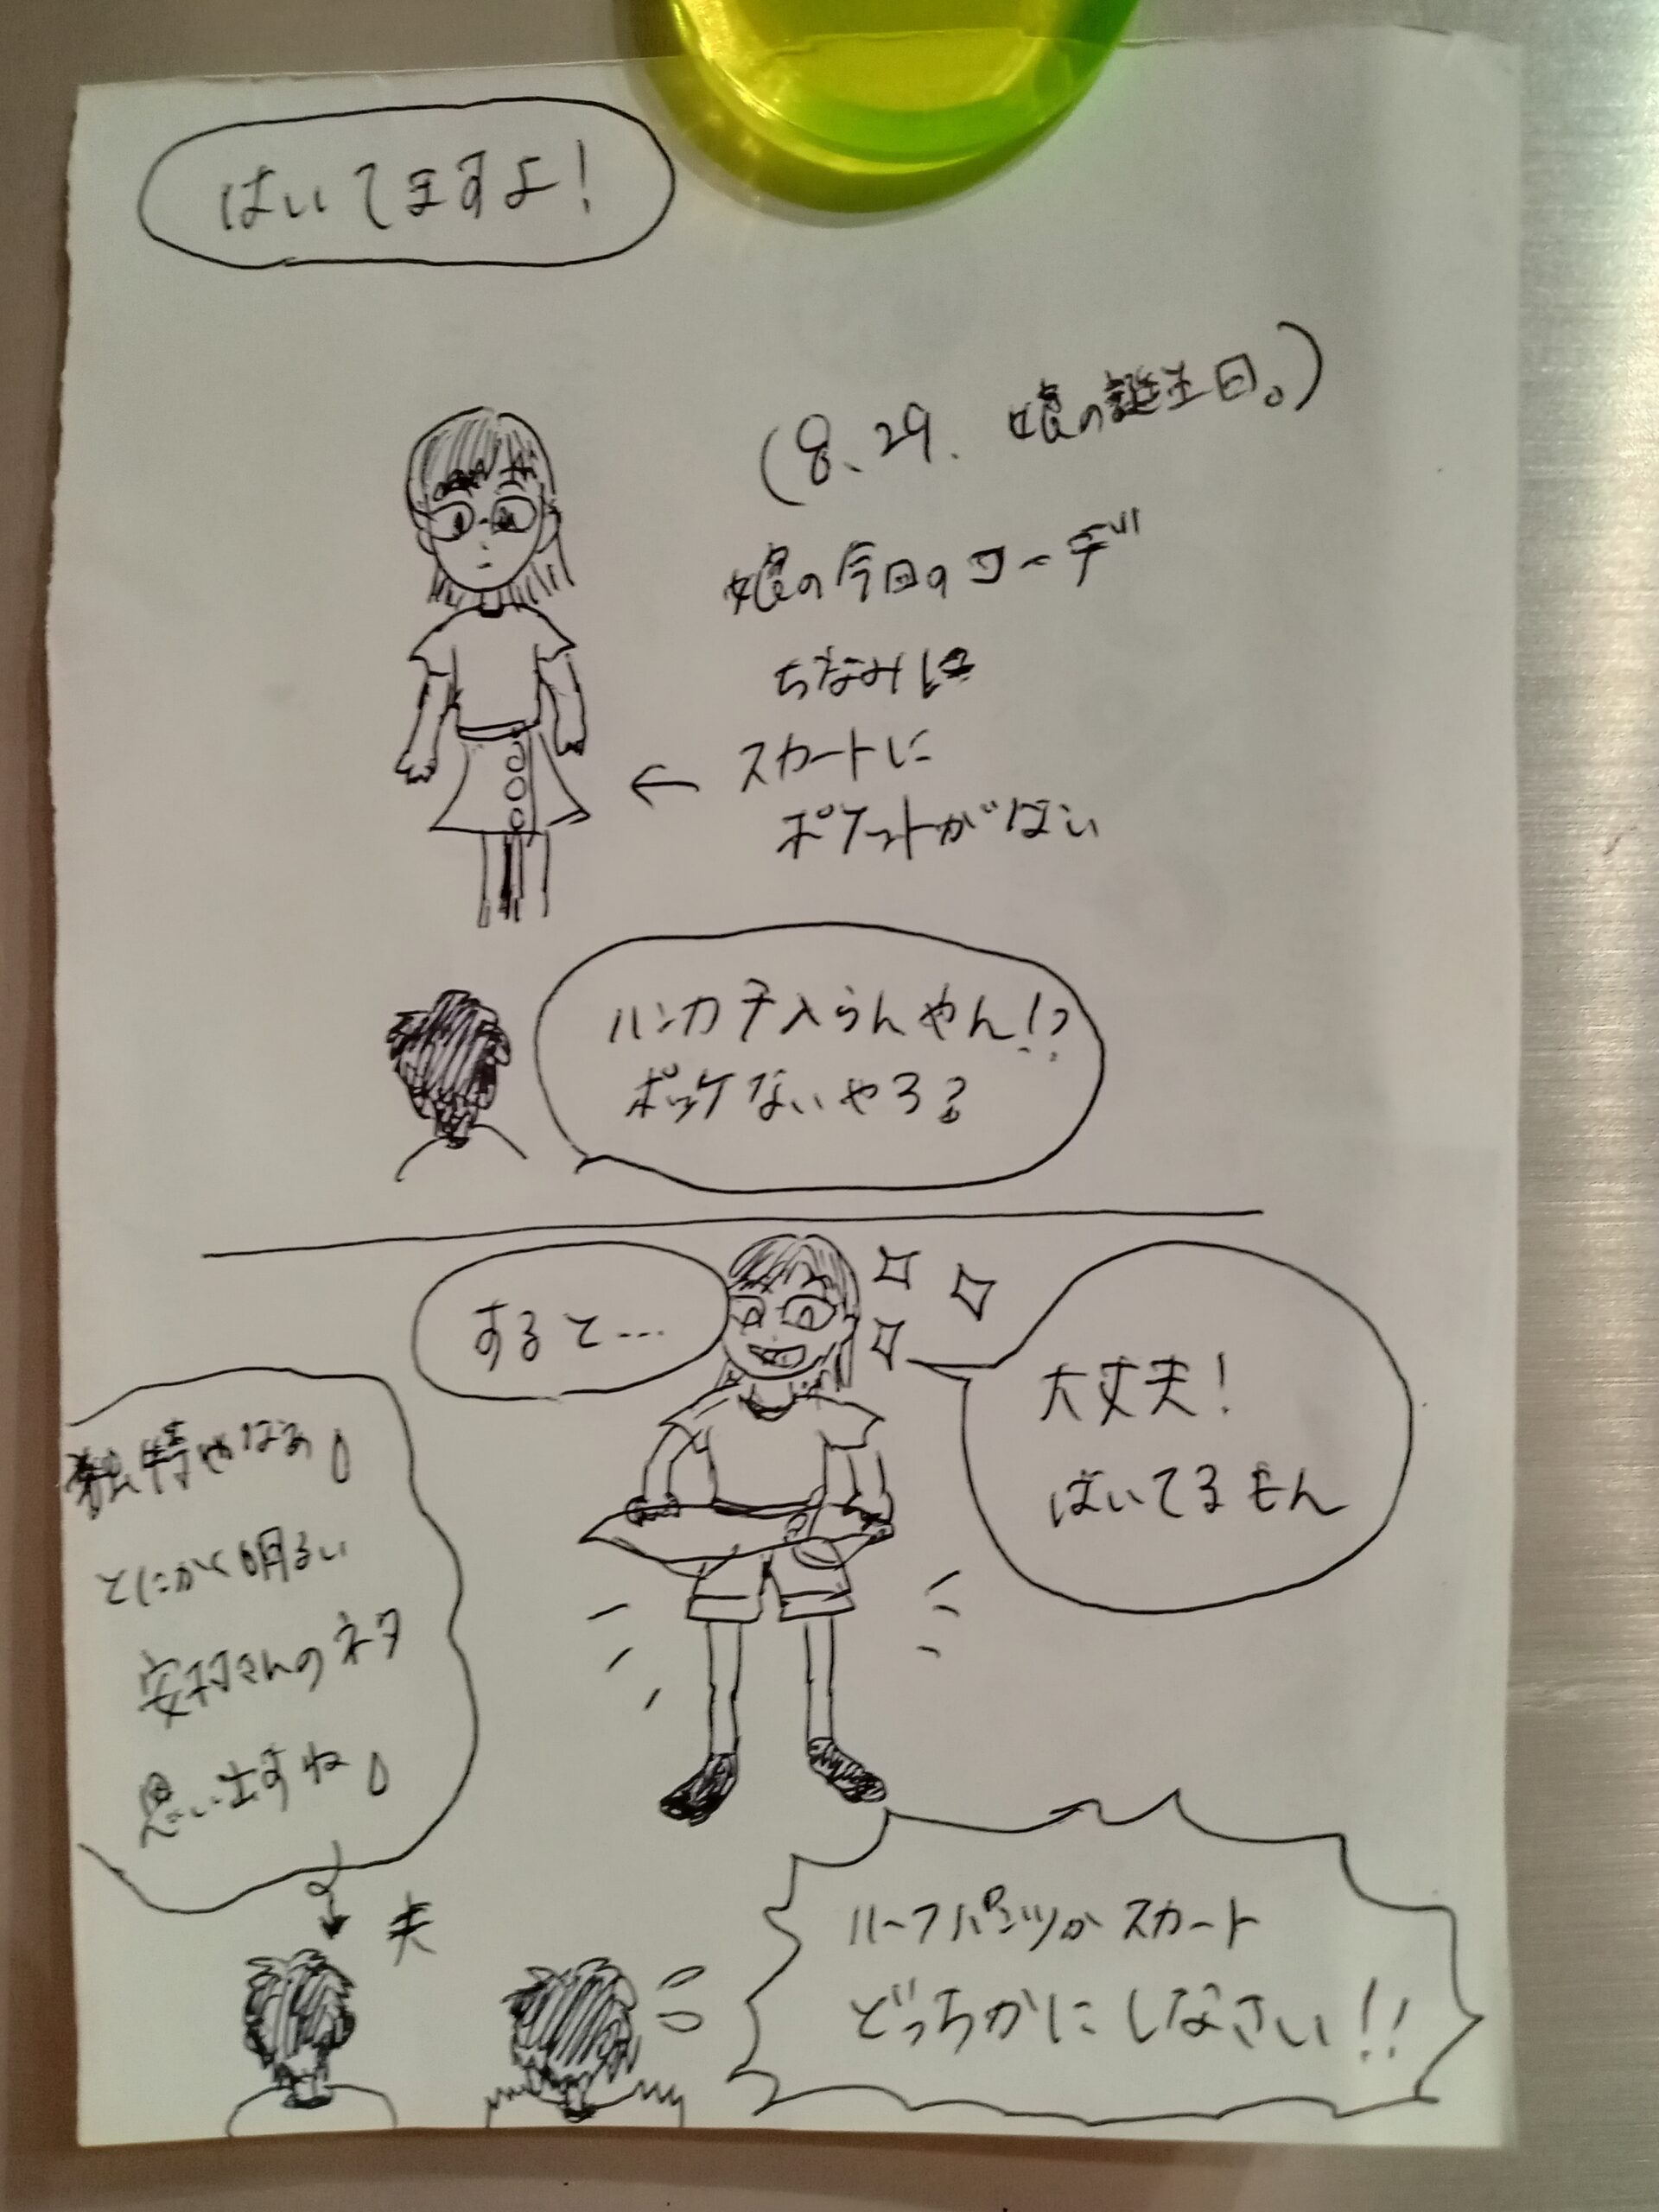 はいてますよ!
(8、29. 娘の誕生日。)
娘の今日のコーデ
ちなみに
スカートに
ポケットがない
ハンカチ入らんやん!?
ポッケないやろ?
すると…
大丈夫!
はいてるもん
独特やなあ。
とにかく明るい
安村さんのネタ
思い出すね。
夫
ハーフパンツかスカート
どっちかにしなさい!!